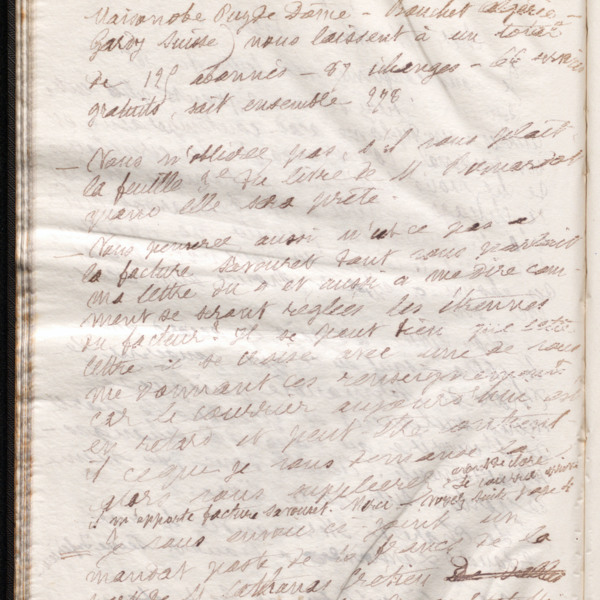 Maisonobe Puy de Dôme - Bouchet Algérie -
Gardy Suisse) nous laissent à un total
de 125 abonnés - 87 échanges - 66 services
gratuits, soit ensemble 278.
- Vous n'oubliez pas, s'il vous plaît,
la feuille du livre de M.
quand elle sera prête.
- Vous pensez aussi n'est ce pas à
la facture Savouret dont vous parlait
ma lettre du 2 et aussi à me dire com-
ment se sont réglées les étrennes
du facteur? Il se peut bien que cette
lettre-ci se croise avec une de vous
me donnant ces renseignements
car le courrier aujourd'hui est
en retard et peut être contient
il ce que je vous demande là
alors vous
Le courrier
m'apporte facture Savouret. Merci
- Je vous envoie ci joint un
mandat poste de 20 francs de la
part de M.